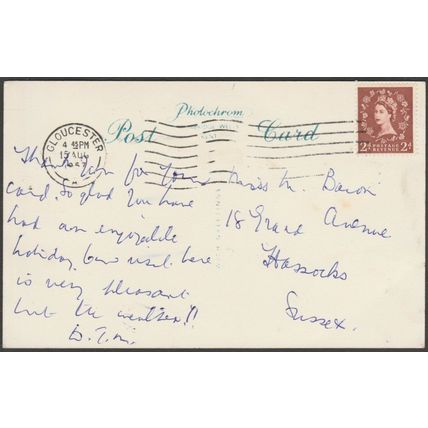 Photochrom
Post Card
GLOUCESTER
4 PM
15 AUG
POSTAGE
REVENUE
2D 2D
Thank you for your
card, so glad you have
had an enjoyable
holiday, our visit here
is very pleasant
but the weather!!
Miss M. Bacon
18 Grand Avenue
Hassocks
Sussex.